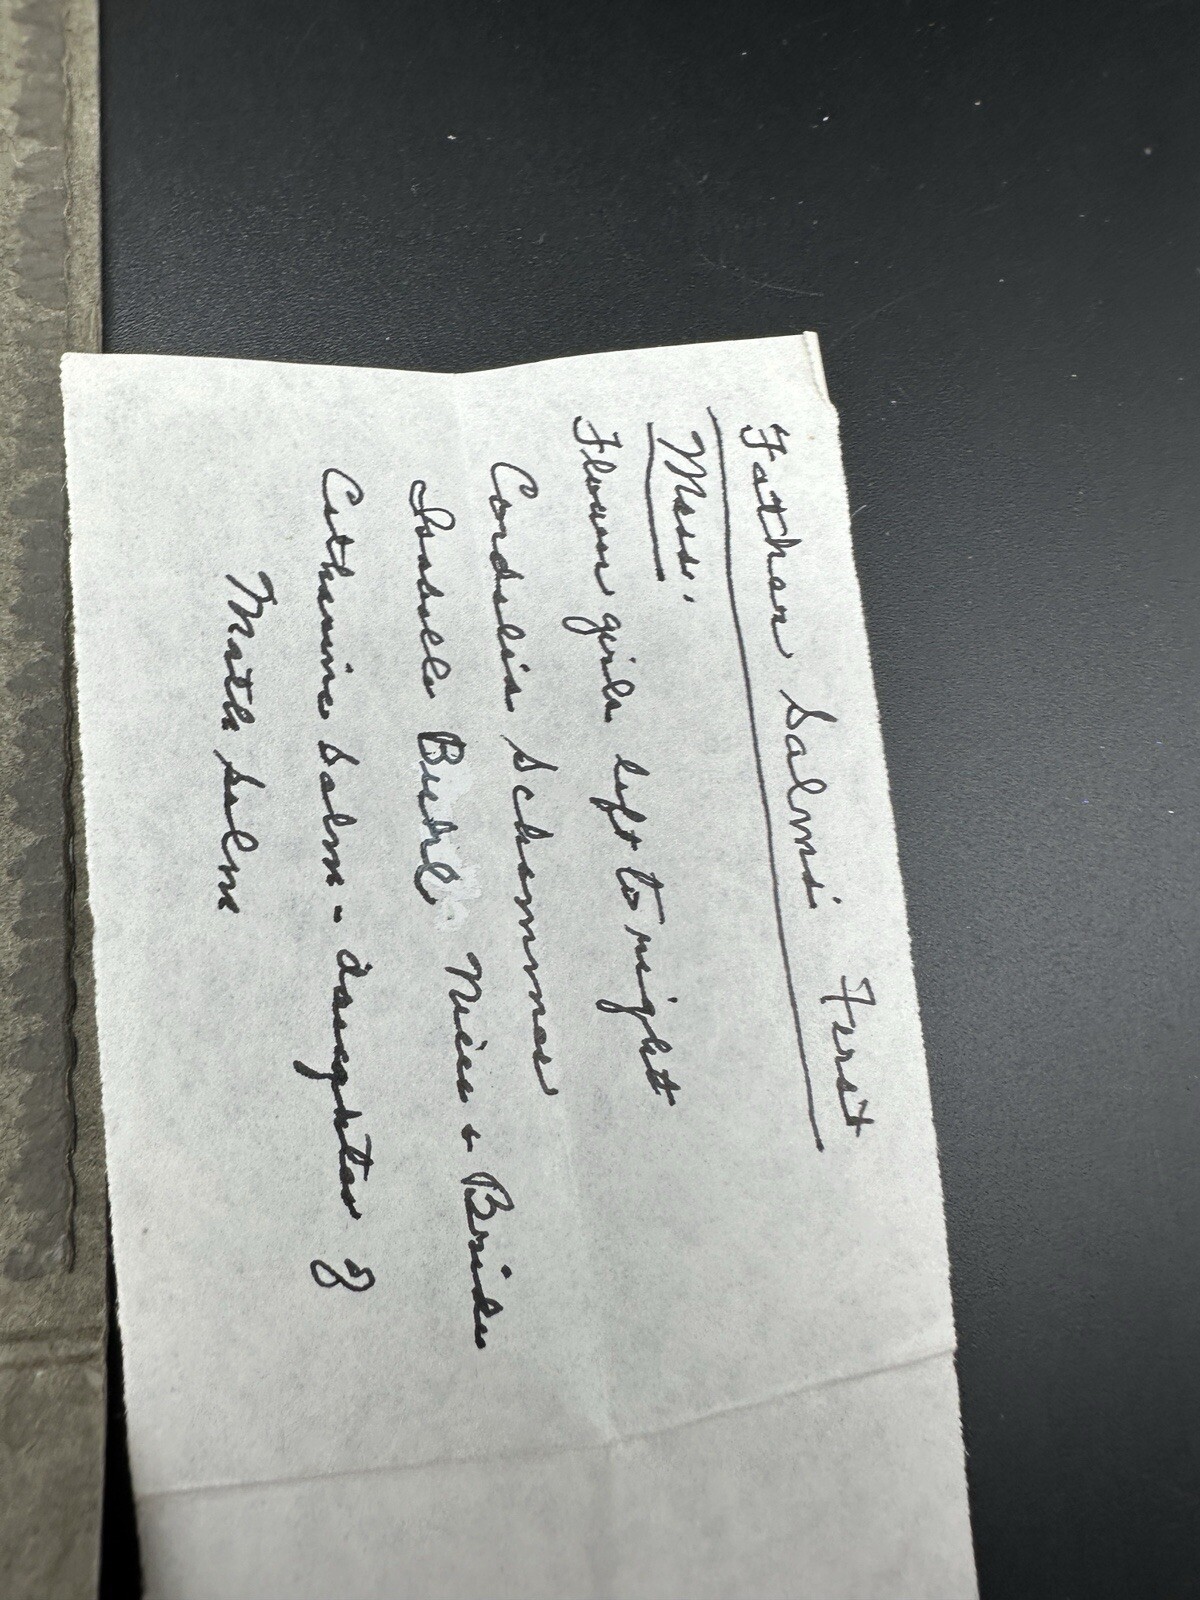 Father Salms' First
Mass.
Flower girls left to right
Cordelia Schommer
Isabelle Buhl Niece & Bride
Catherine Salm - daughter of
Math Salm